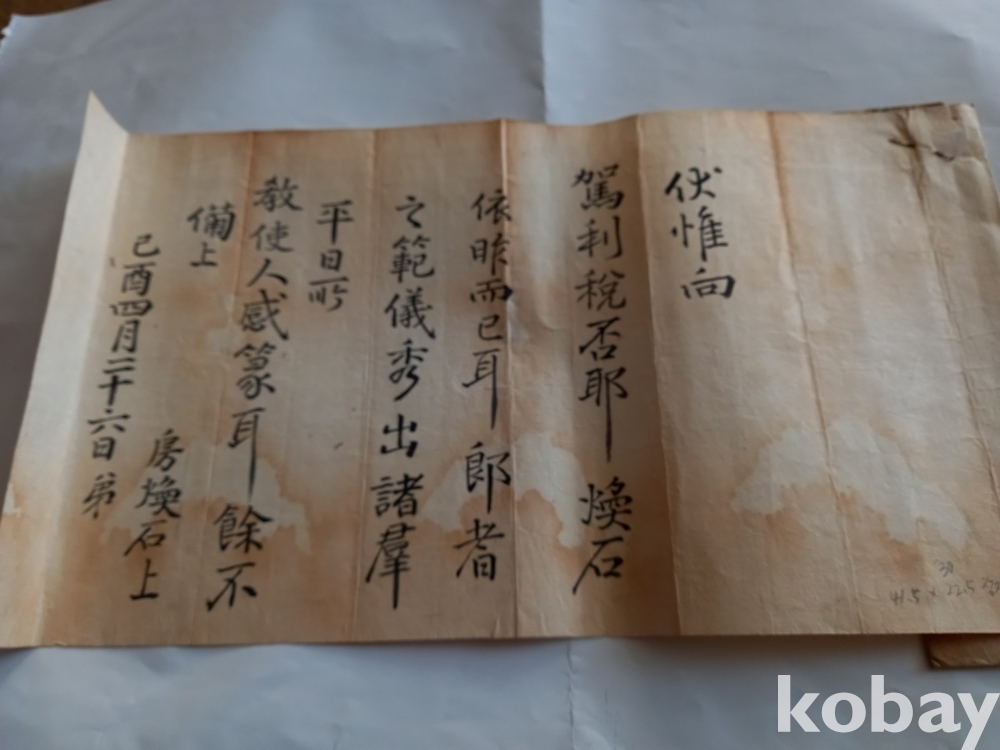 伏惟向
駕利稅否耶 煥石
依昨而已耳 郎者
之範儀秀出諸羣
平日所
教使人感篆耳 餘不
備上
己酉四月二十六日 弟
房煥石上
kobay